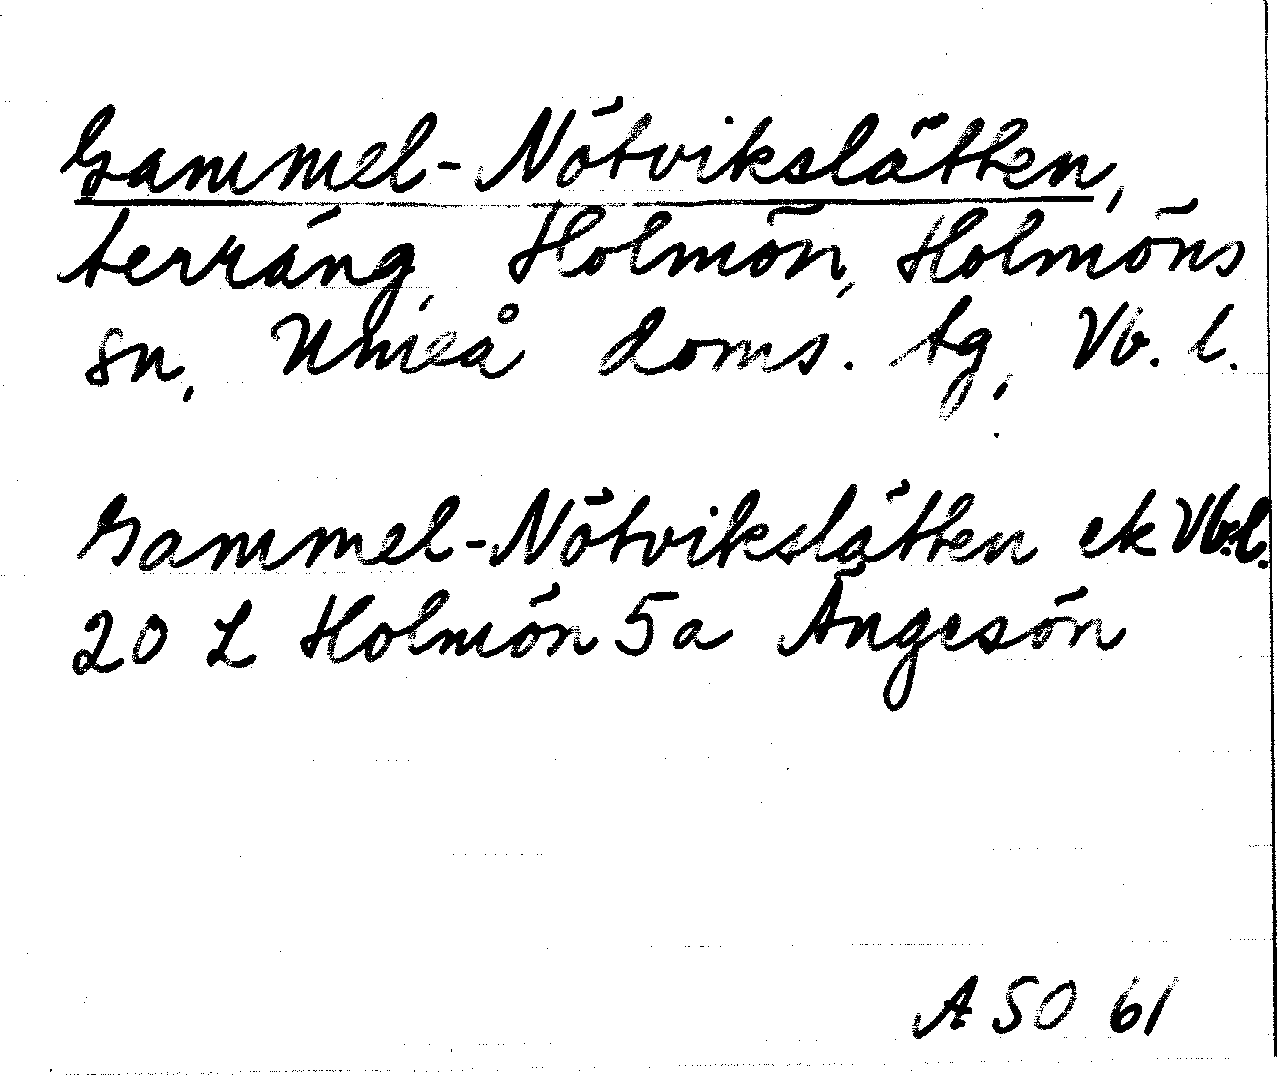 Gammel-Nötvikslätten,
terräng, Holmön, Holmöns
sn, Umeå doms. tg, Vb. l.
Gammel-Nötvikslätten ek Vb.l.
20 L Holmön 5a Ängesön
A SO 61